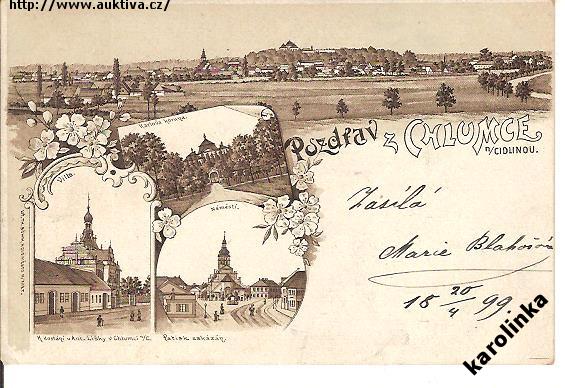 http://www.auktiva.cz/
Pozdrav z CHLUMCE
n/CIDLINOU.
Karlova koruna.
Villa.
Náměstí.
Zasílá
Marie Blahošová
18 20/4 99
K dostání u Ant. Lišky v Chlumci n/C.
Patisk zakázán.
karolinka